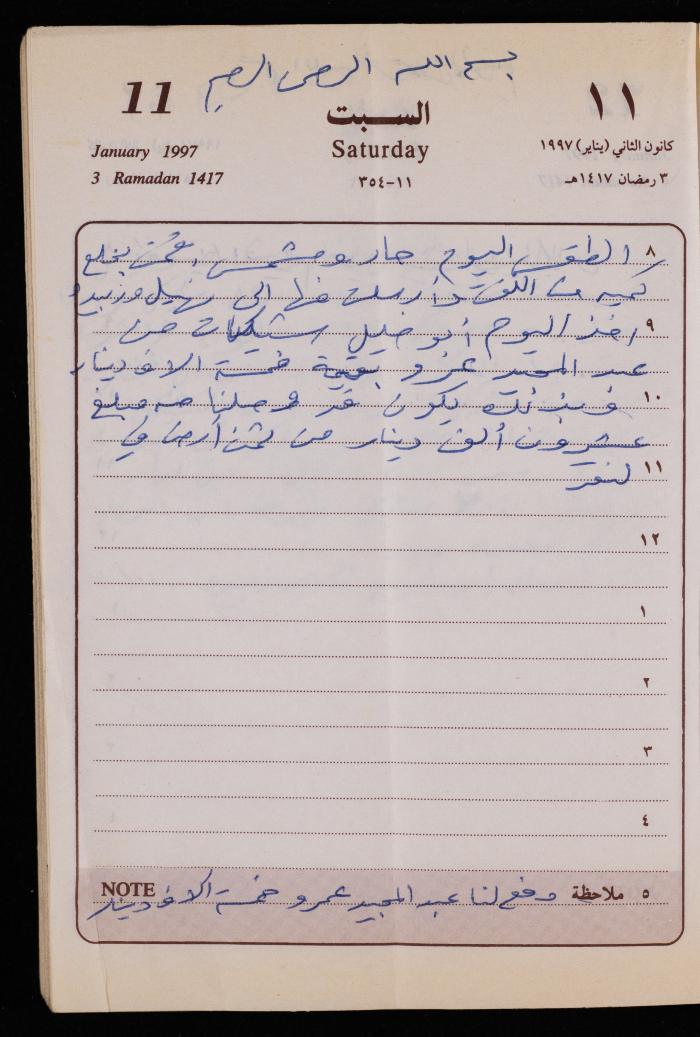 بسم الله الرحمن الرحيم
11
السبت
١١
January 1997
Saturday
كانون الثاني (يناير) ١٩٩٧
3 Ramadan 1417
١١-٣٥٤
٣ رمضان ١٤١٧هـ
٨ الطقس اليوم حار ومشمس، قمت بخلع
كمية من اللفت وأرسلت منها الى
٩ اخذ اليوم أبو خليل شيكات من
عبد المجيد عمرو بقيمة خمسة الاف دينار
١٠ وبذلك يكون قد وصلنا منه مبلغ
عشرون ألف دينار من ثمن أرض في
١١
١٢
١
٢
٣
٤
NOTE
٥ ملاحظة دفع لنا عبد المجيد عمرو خمسة الاف دينار